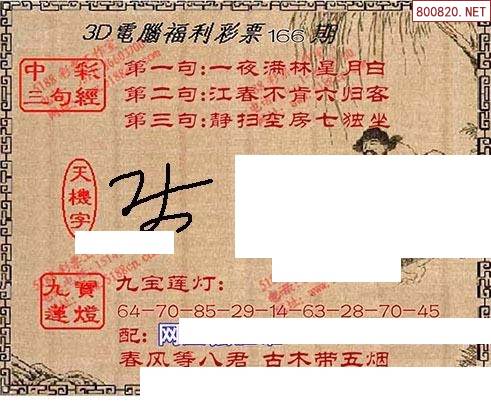 800820.NET
3D電腦福利彩票166期
中彩三句經
第一句:一夜满林星月白
第二句:江春不肯六归客
第三句:静扫空房七独坐
天機字
九寶蓮燈
九宝莲灯:
64-70-85-29-14-63-28-70-45
配:
春风等八君 古木带五烟